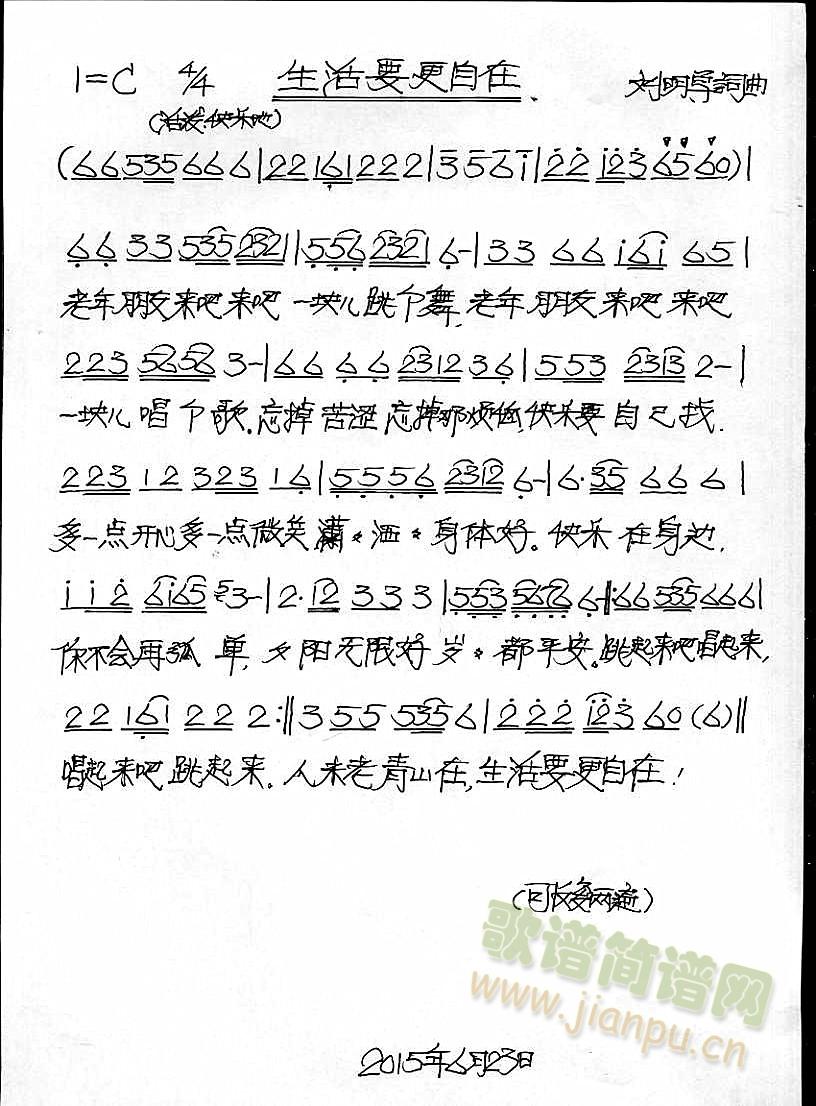 1=C 4/4 生活要更自在. 刘明导詞曲
(活泼.快乐地)
(66535666|2216122 2|356i|22 i23 6560)|
66 33 535 2321|556 2321 6-|33 66 i6i 65|
老年朋友来吧来吧一块儿跳个舞,老年朋友来吧来吧
223 5658 3-|66 66 2312 36|553 2313 2-|
一块儿唱个歌.忘掉苦涩忘掉那烦恼,快乐要自己找.
223 12 323 16|5556 2312 6-|6·35 66 6|
多一点开心多一点微笑潇*洒*身体好。快乐在身边,
i i2 6i65 53-|2·12 33 3|553 5676 6-‖:66535666|
你不会再孤单,夕阳无限好岁*都平安。跳起来吧唱起来,
22 16i 22 2:‖355 5356|222 i23 60(6)‖
唱起来吧跳起来。人未老青山在,生活要更自在!
(可反复两遍)
歌谱简谱网
www.jianpu.cn
2015年6月23日